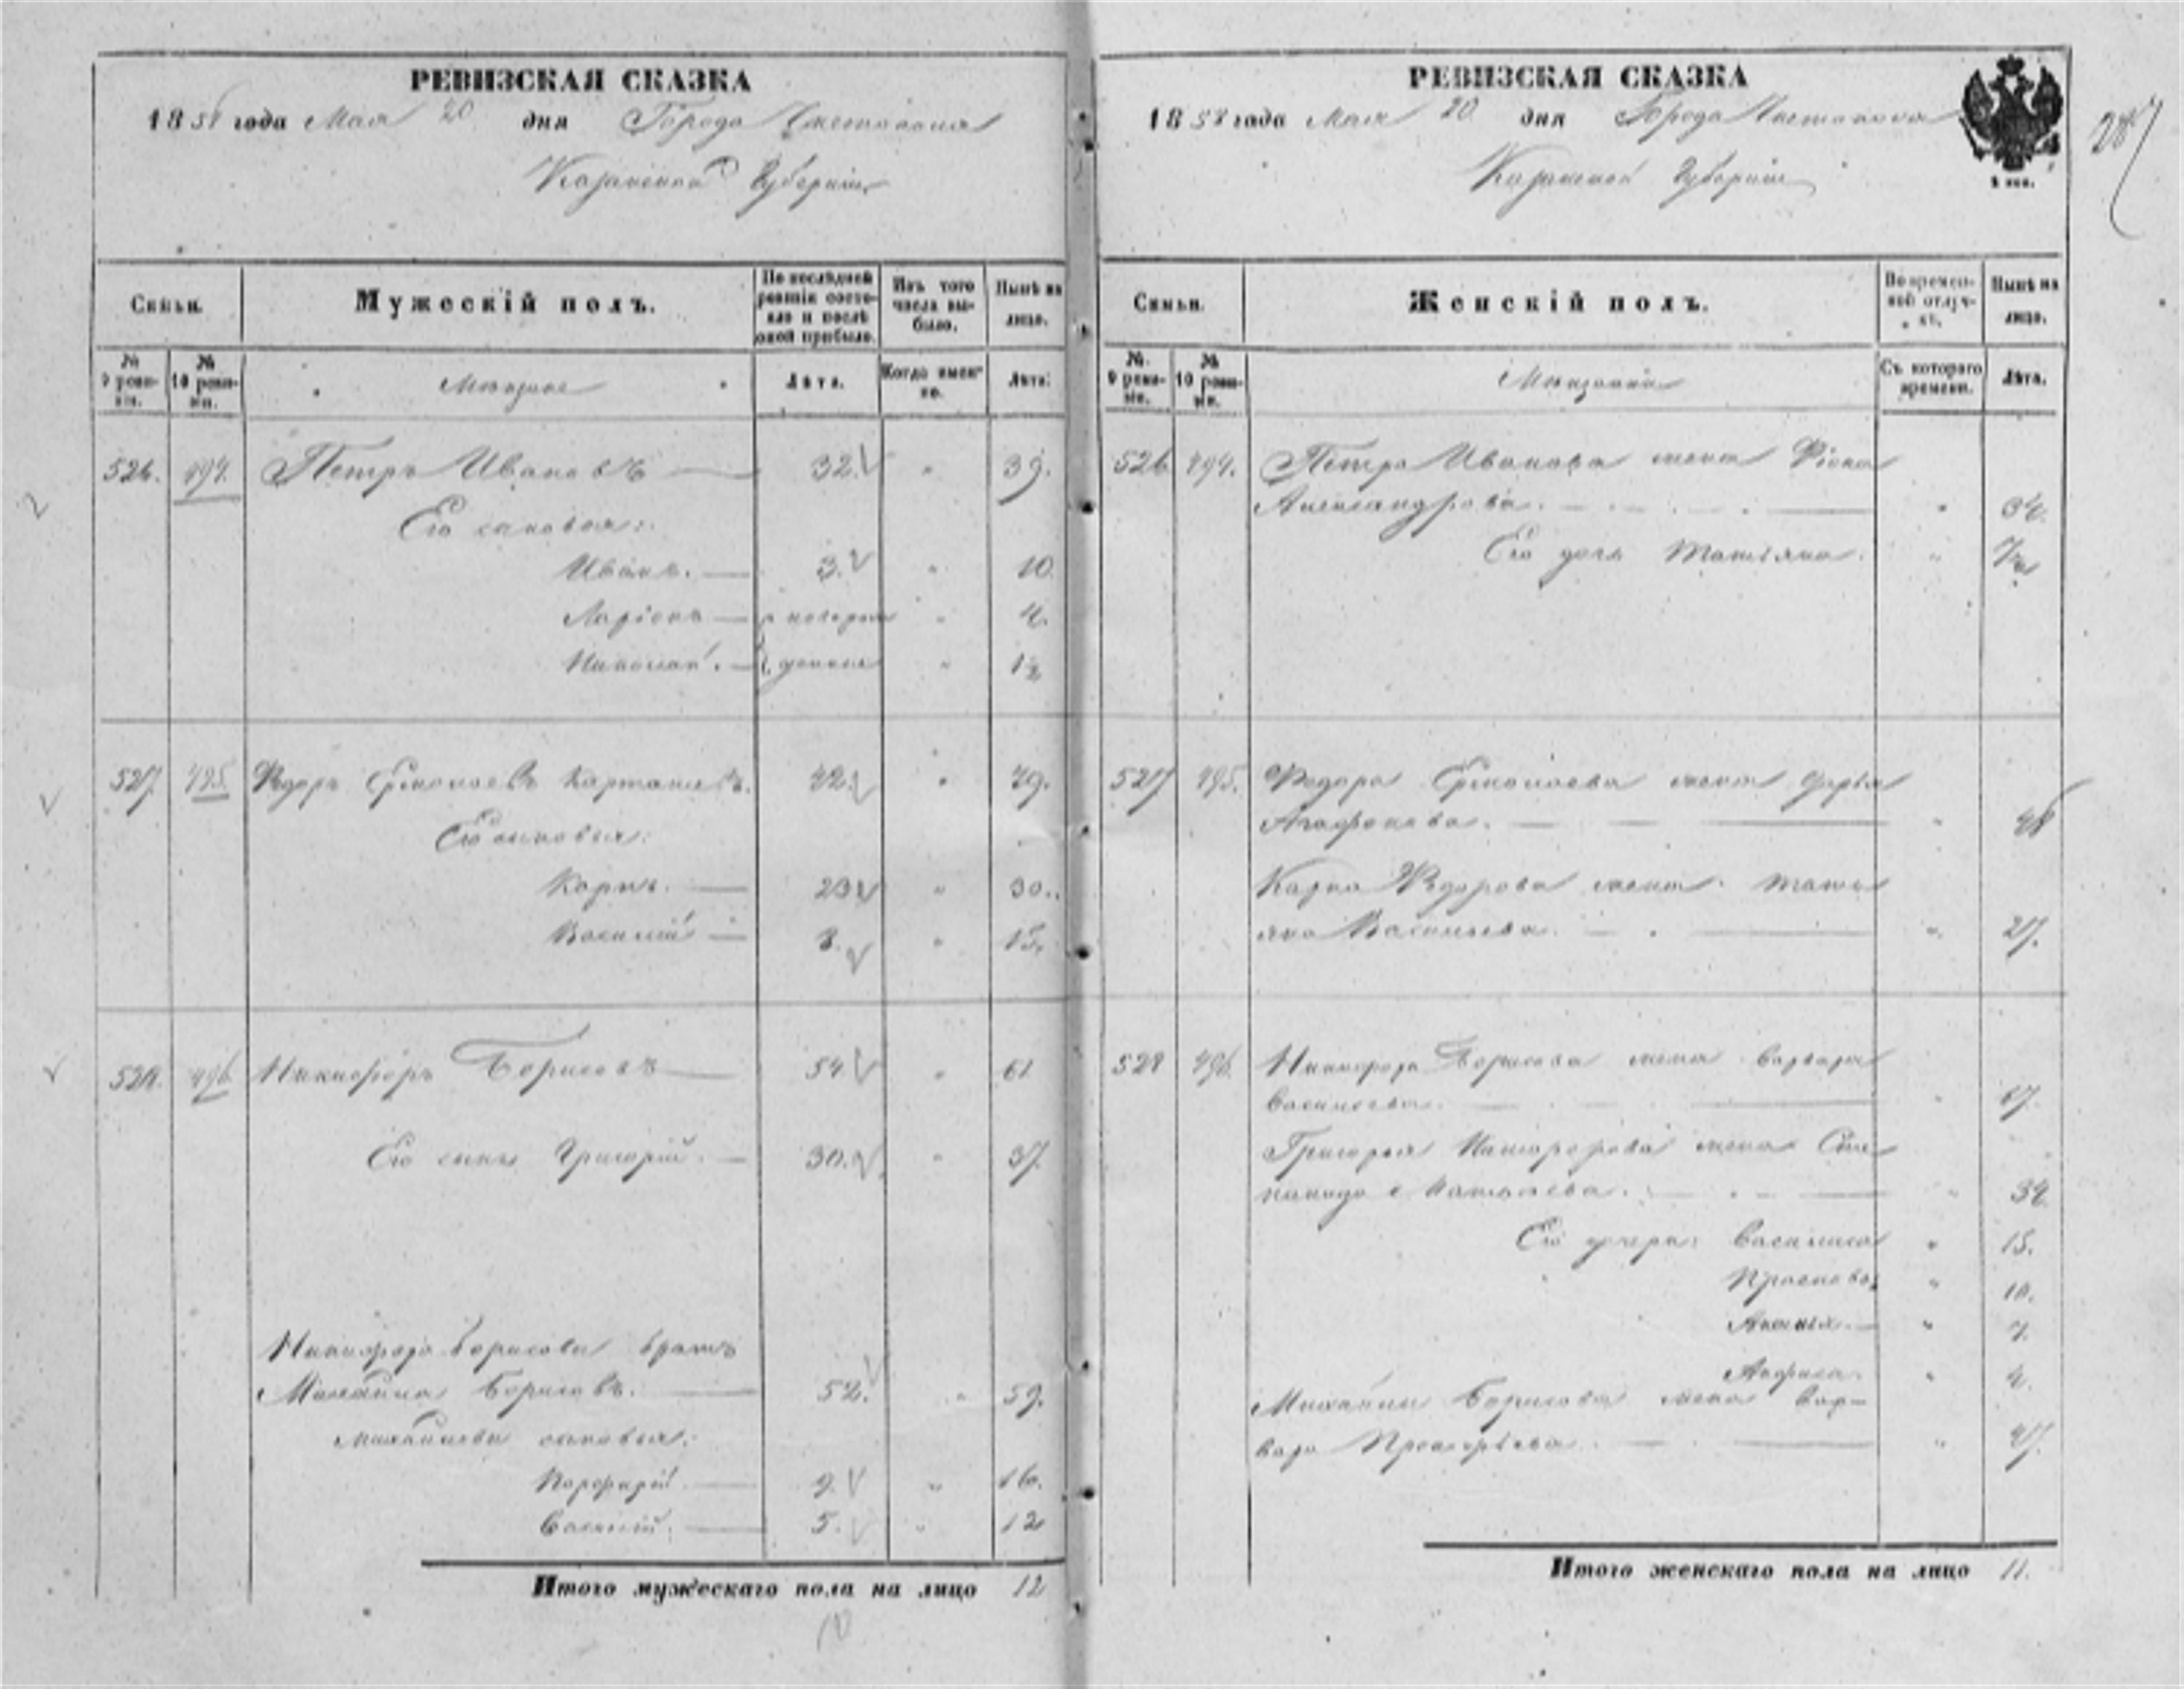 РЕВИЗСКАЯ СКАЗКА
1858 года Мая 20 дня Города Чистополя
Казанской Губерніи
Семьи.
Мужескій полъ.
По послѣдней ревизіи состояло и послѣ оной прибыло.
Изъ того числа выбыло.
Нынѣ на лицо.
№ 9 ревизіи.
№ 10 ревизіи.
Мѣщане
Лѣта.
Когда именно.
Лѣта.
526. 494. Петръ Ивановъ — 32. " 39.
Его сыновья:
Иванъ. — 3. " 10.
Ларіонъ — " 4.
Николай. — " 1½
527. 495. Федоръ Ермолаевъ 42. " 49.
Его сыновья:
Карпъ. — 23 " 30.
Василій — 8. " 15.
528. 496. Никифоръ Борисовъ — 54 " 61
Его сынъ Григорій. — 30. " 37.
Никифора Борисова братъ
Михаила Борисовъ. — 52. " 59.
Михайловы сыновья:
Порфирій. — 9. " 16.
Василій. — 5. " 12
Итого мужескаго пола на лицо 12
РЕВИЗСКАЯ СКАЗКА
1858 года Мая 20 дня Города Чистополя
Казанской Губерніи
287
Семьи.
Женскій полъ.
Во временной отлучкѣ.
Нынѣ на лицо.
№ 9 ревизіи.
№ 10 ревизіи.
Мѣщанки
Съ котораго времени.
Лѣта.
526 494. Петра Иванова жена
Александрова. — " 34.
Его дочь Татьяна. "
527 495. Федора Ермолаева жена Дарья
Агафонова. — " 48
Карпа Федорова жена Тать
яна Васильева. — " 27.
528 496. Никифора Борисова жена Варвара
Васильева. — " 57.
Григорья Никифорова жена Сте
панида — " 34.
Его дочери: Василиса " 15.
Прасковья " 10.
" 7.
Анфиса. " 4.
Михайлы Борисова жена Вар-
вара Прокофьева. — " 47.
Итого женскаго пола на лицо 11.